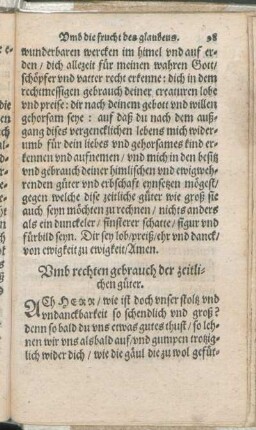 Vmb die frucht des glaubens. 98
wunderbaren wercken im himel vnd auf er-
den / dich allezeit für meinen wahren Gott /
schöpfer vnd vatter recht erkenne: dich in dem
rechtmessigen gebrauch deiner creaturen lobe
vnd preise: dir nach deinem gebott vnd willen
gehorsam seye: auf daß du nach dem auß-
gang dises vergencklichen lebens mich wider-
umb für dein liebes vnd gehorsames kind er-
kennen vnd aufnemen / vnd mich in den besitz
vnd gebrauch deiner himlischen vnd ewigweh-
renden güter vnd erbschafft eynsetzen mögest /
gegen welche dise zeitliche güter wie groß sie
auch seyn möchten zu rechnen / nichts anders
als ein dunckeler / finsterer schatte / figur vnd
fürbild seyn. Dir sey lob / preiß / ehr vnd danck /
von ewigkeit zu ewigkeit / Amen.
Vmb rechten gebrauch der zeitli-
chen güter.
ACh HERR / wie ist doch vnser stoltz vnd
vndanckbarkeit so schendlich vnd groß?
denn so bald du vns etwas gutes thust / so leh-
nen wir vns als bald auf / vnd gumpen trotzig-
lich wider dich / wie die gäul die zu wol gefüt-